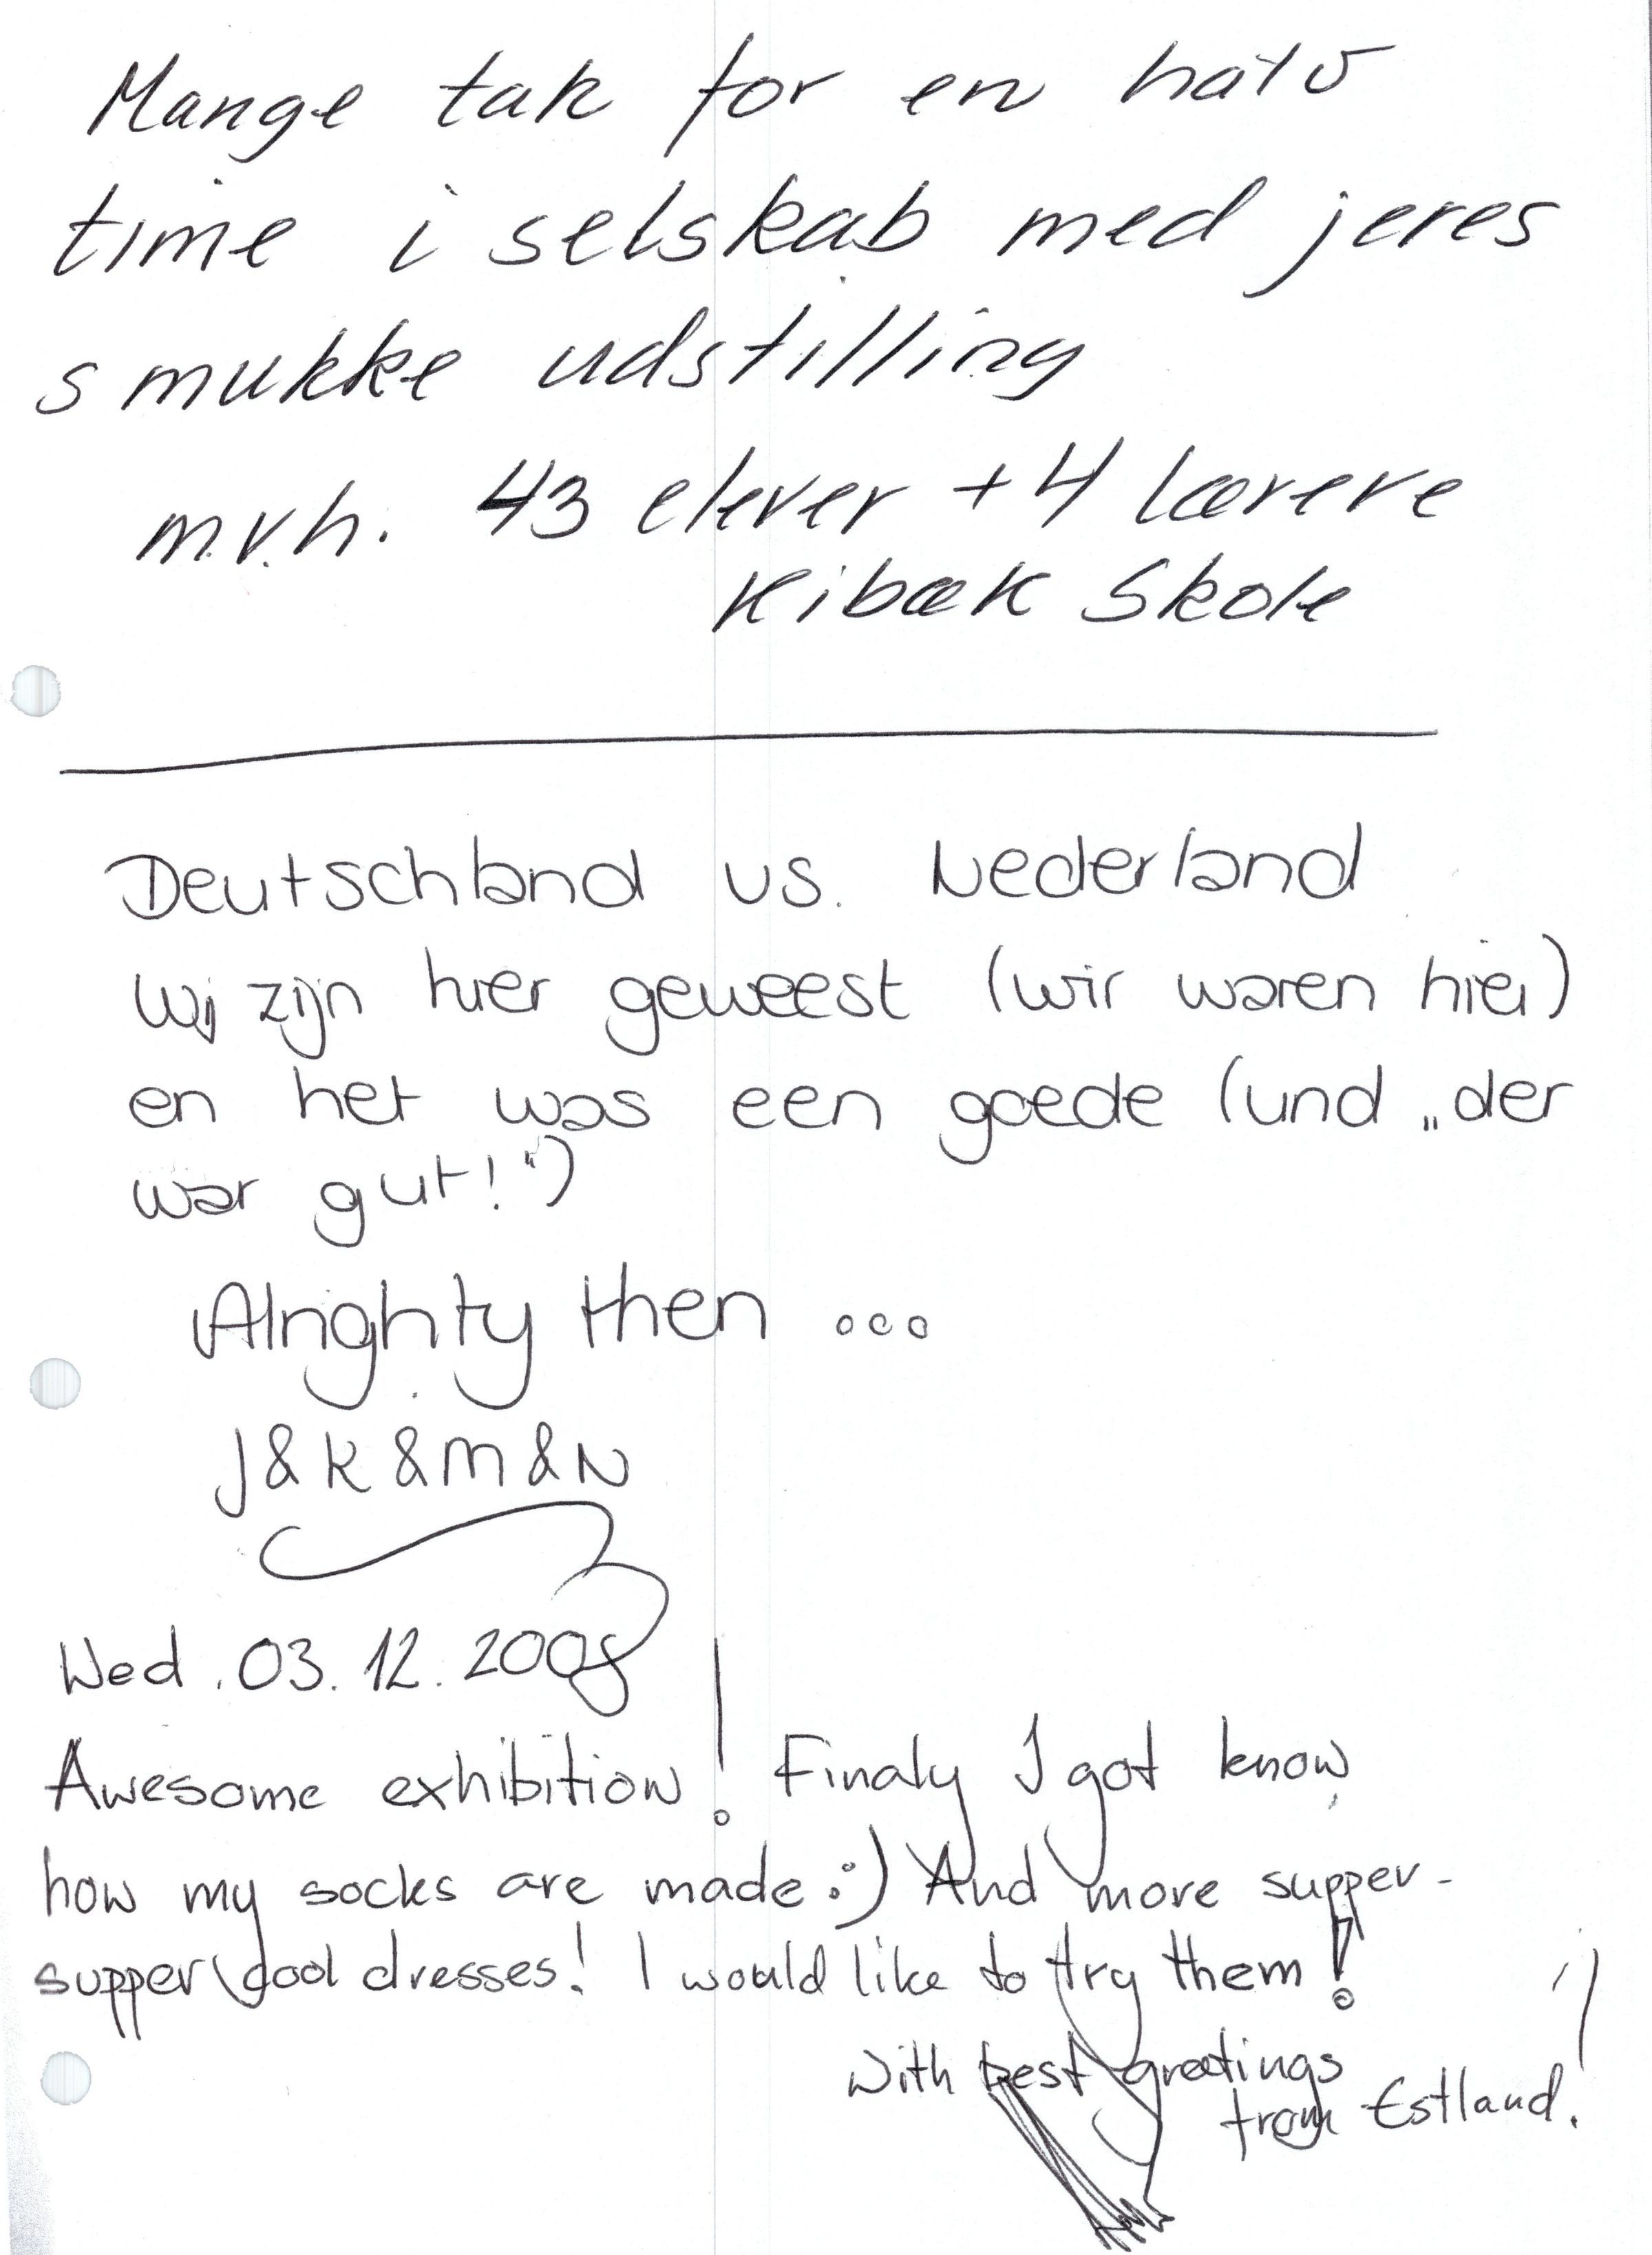 Mange tak for en halv
time i selskab med jeres
smukke udstilling
m.v.h. 43 elever + 4 lærere
Kibæk Skole
Deutschland vs. Nederland
Wij zijn hier geweest (wir waren hier)
en het was een goede (und „der
war gut!")
Alrighty then ...
J & K & M & N
Wed. 03.12.2008
Awesome exhibition! Finaly I got know
how my socks are made :) And more supper-
supper cool dresses! I would like to try them!
With best greetings
from Estland!